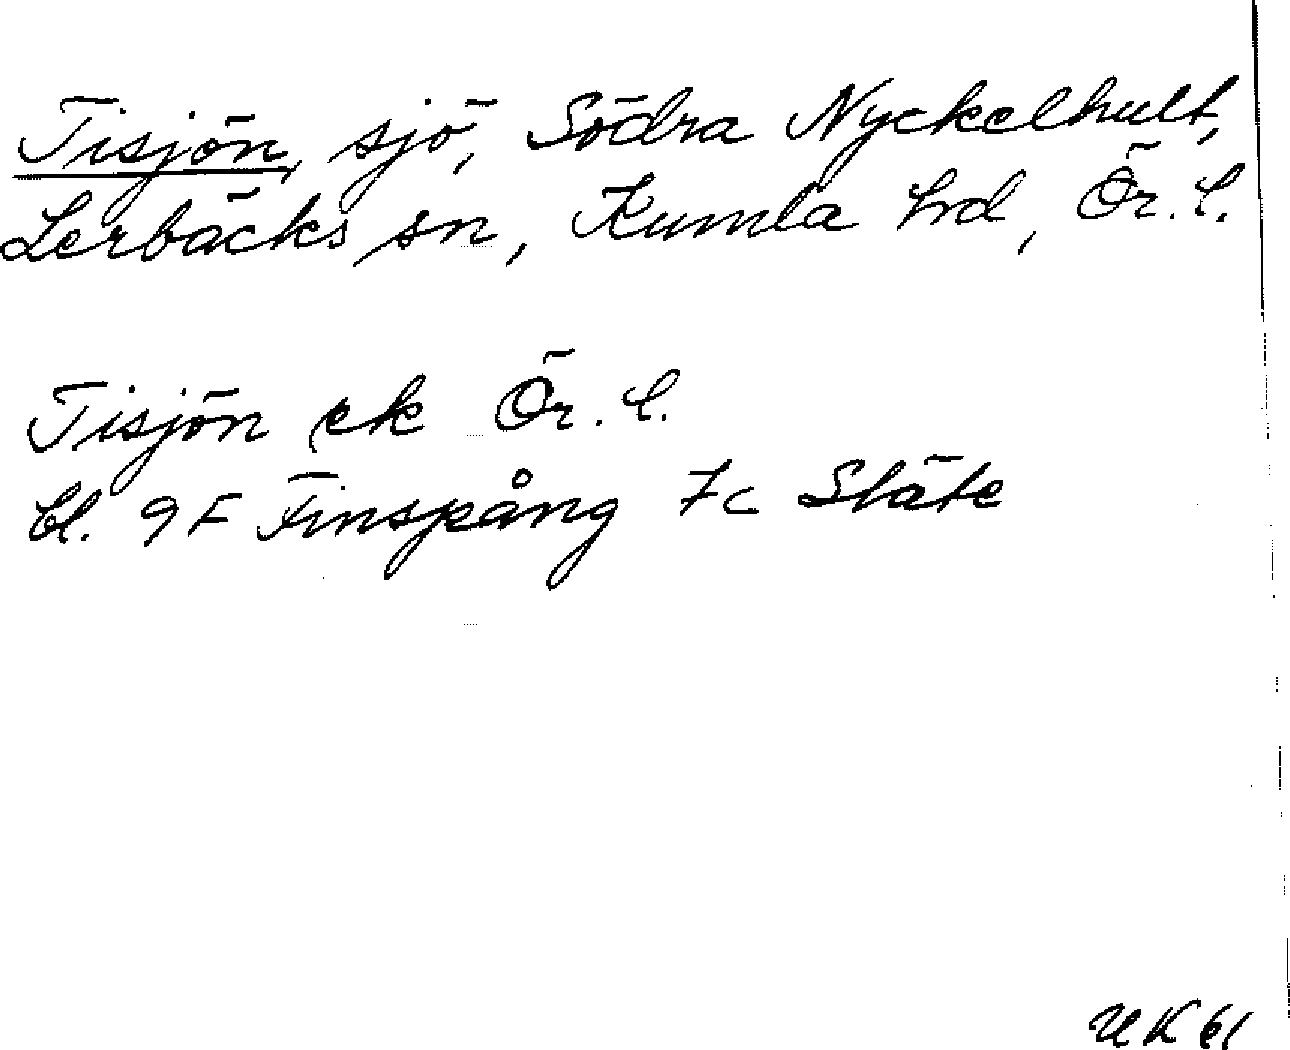 Tisjön, sjö, Södra Nyckelhult,
Lerbäcks sn, Kumla hd, Ör. l.
Tisjön ek Ör. l.
bl. 9F Finspång 7c Släte
UK 61